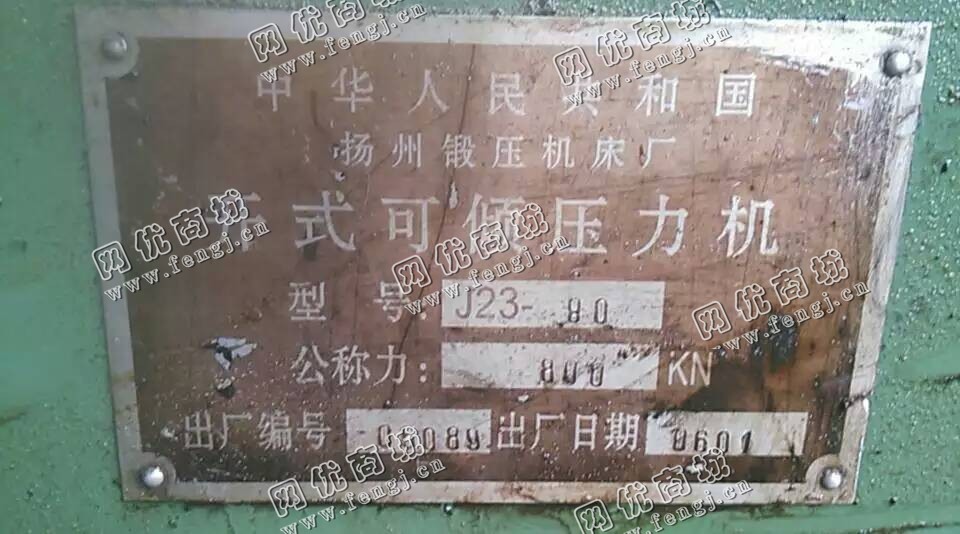 中华人民共和国
扬州锻压机床厂
式可倾压力机
型号: J23-80
公称力: 800 KN
出厂编号 089 出厂日期 0601
网优商城
www.fengj.cn
网优商城
www.fengj.cn
网优商城
www.fengj.cn
网优商城
www.fengj.cn
网优商城
www.fengj.cn
网优商城
www.fengj.cn
网优商城
www.fengj.cn